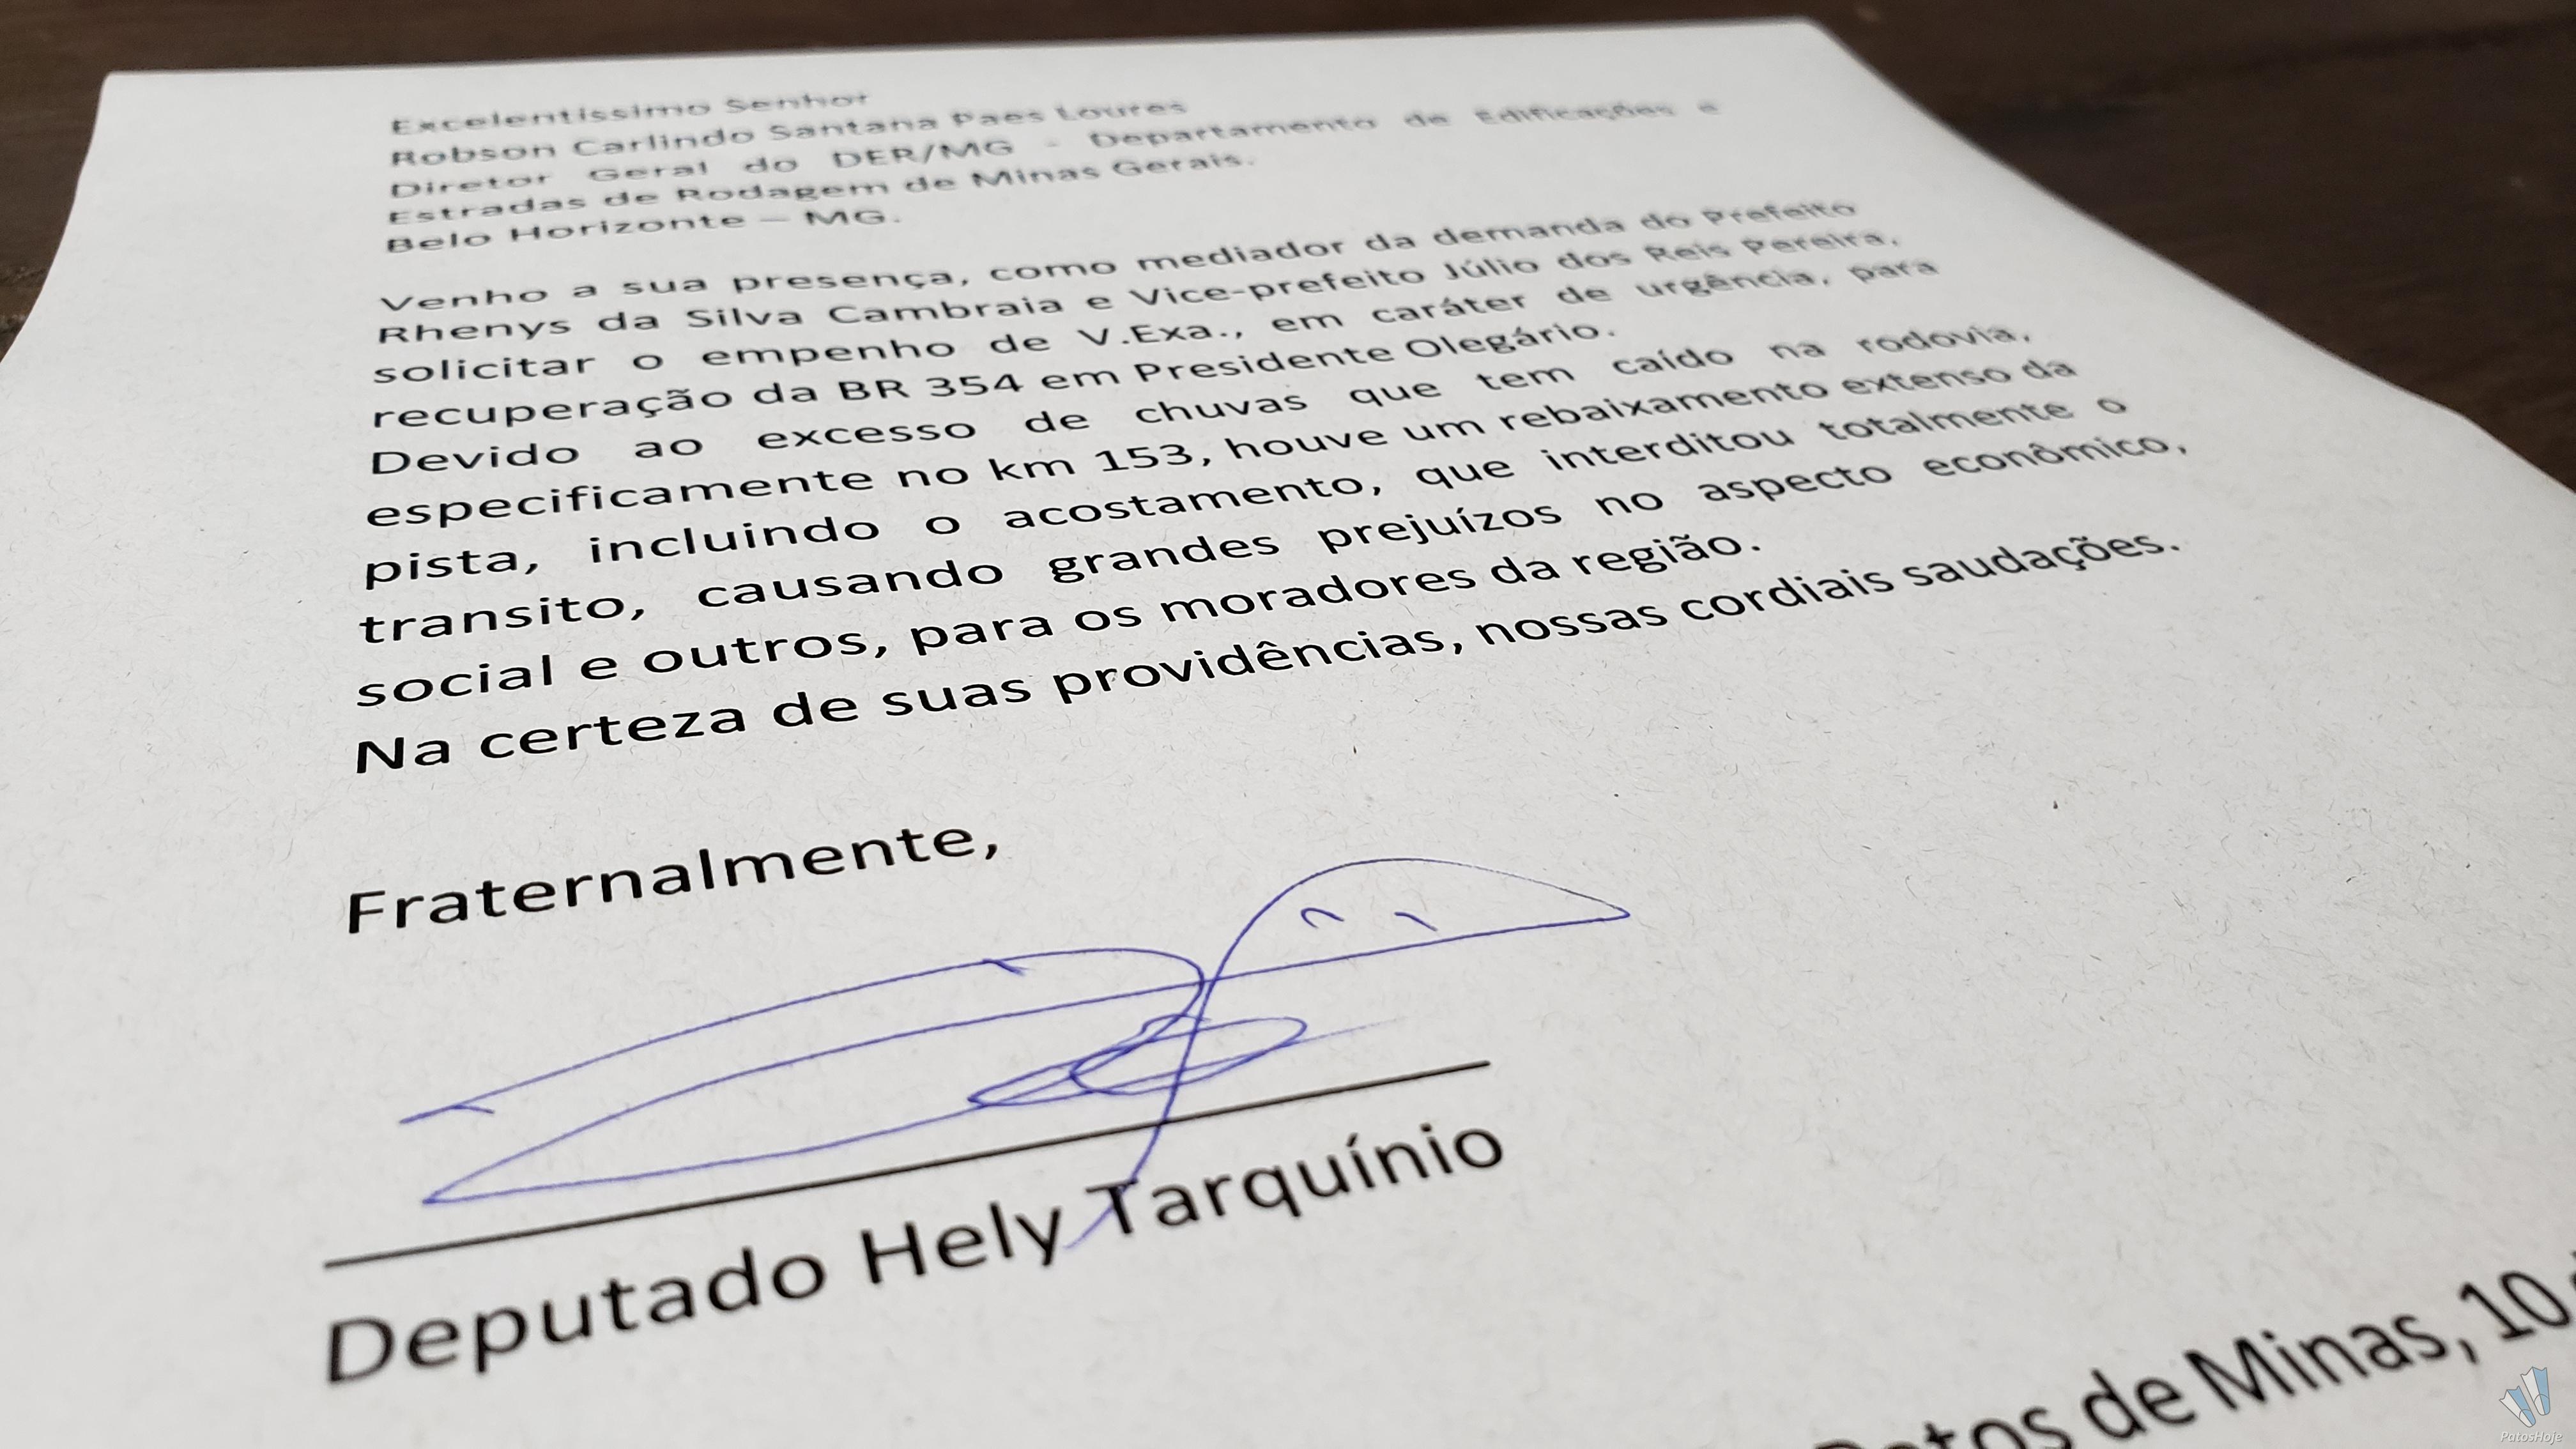 Excelentíssimo Senhor
Robson Carlindo Santana Paes Loures
Diretor Geral do DER/MG - Departamento de Edificações e
Estradas de Rodagem de Minas Gerais.
Belo Horizonte – MG.
Venho a sua presença, como mediador da demanda do Prefeito
Rhenys da Silva Cambraia e Vice-prefeito Júlio dos Reis Pereira,
solicitar o empenho de V.Exa., em caráter de urgência, para
recuperação da BR 354 em Presidente Olegário.
Devido ao excesso de chuvas que tem caído na rodovia,
especificamente no km 153, houve um rebaixamento extenso da
pista, incluindo o acostamento, que interditou totalmente o
transito, causando grandes prejuízos no aspecto econômico,
social e outros, para os moradores da região.
Na certeza de suas providências, nossas cordiais saudações.
Fraternalmente,
Deputado Hely Tarquínio
Patos de Minas, 10
PatosHoje